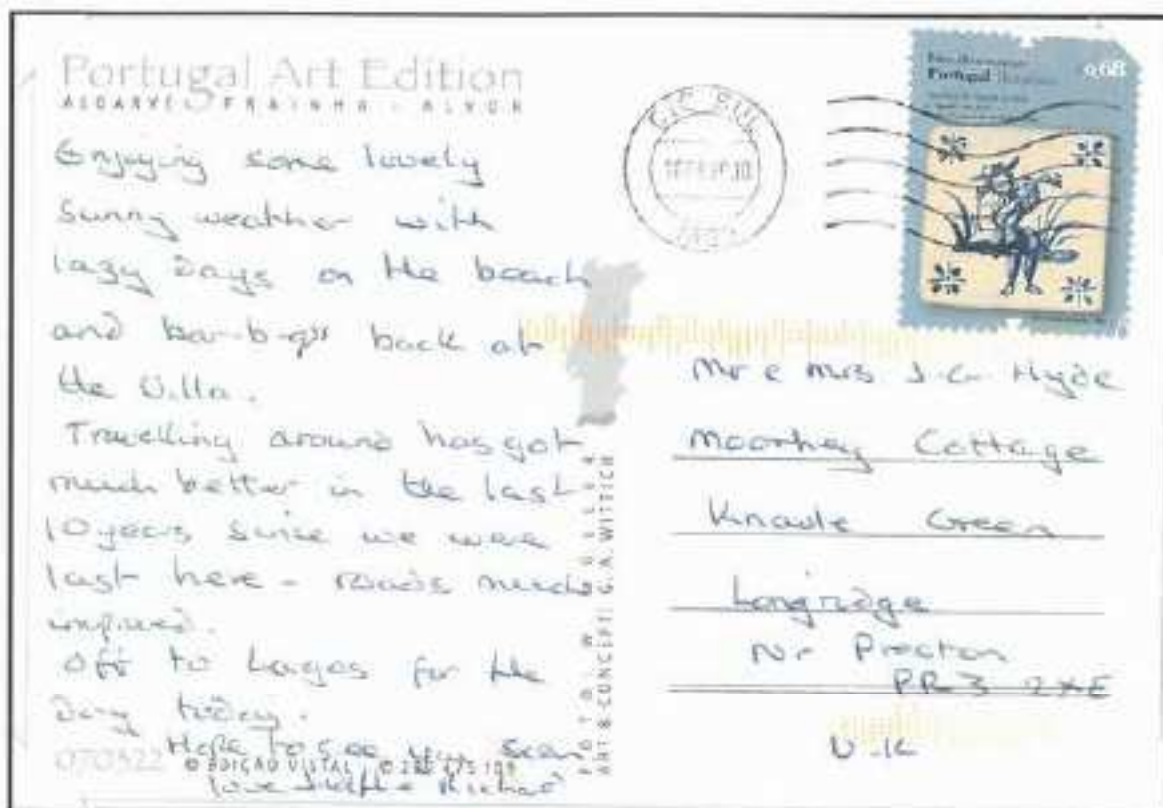 Portugal Art Edition
ALGARVE · PRAINHA · ALVOR
Enjoying some lovely
sunny weather with
lazy days on the beach
and bar-b-q's back at
the Villa.
Travelling around has got
much better in the last
10 years since we were
last here - roads much
improved.
Off to Lagos for the
day today.
Hope to see you soon
love & Richard
070322 © EDIÇÃO VISTAL · ©
ART & CONCEPT: G.A. WITTICH
C.C. SUL
Portugal
0,68
Mr & Mrs J.G. Hyde
Moorhey Cottage
Knowle Green
Longridge
Nr Preston
PR3 2XE
U.K